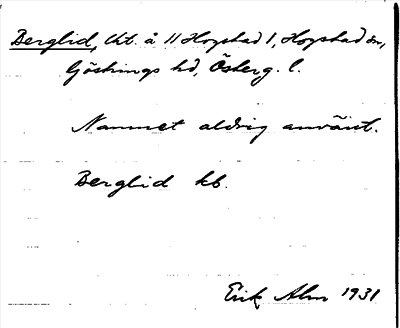 Berglid, Lht. å 11 Hogstad 1, Hogstad sn,
Göstrings hd, Österg. l.
Namnet aldrig använt.
Berglid kb.
Erik Alm 1931